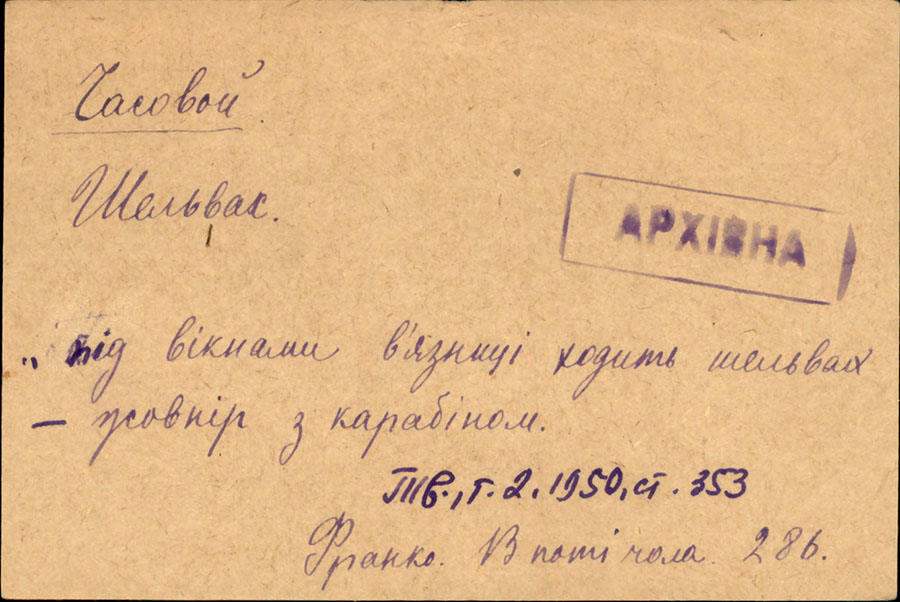 Часовой.
Шельвах.
АРХІВНА
„ під вікнами в'язниці ходить шельвах
— жовнір з карабіном.
Тв., т. 2. 1950, ст. 353
Франко. В поті чола. 286.